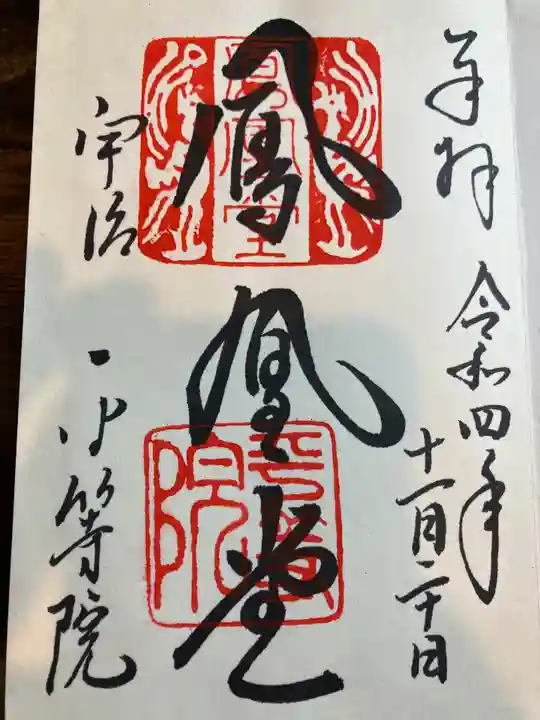 奉拝
令和四年
十一月二十日
鳳凰堂
鳳凰堂
平等院
宇治
平等院